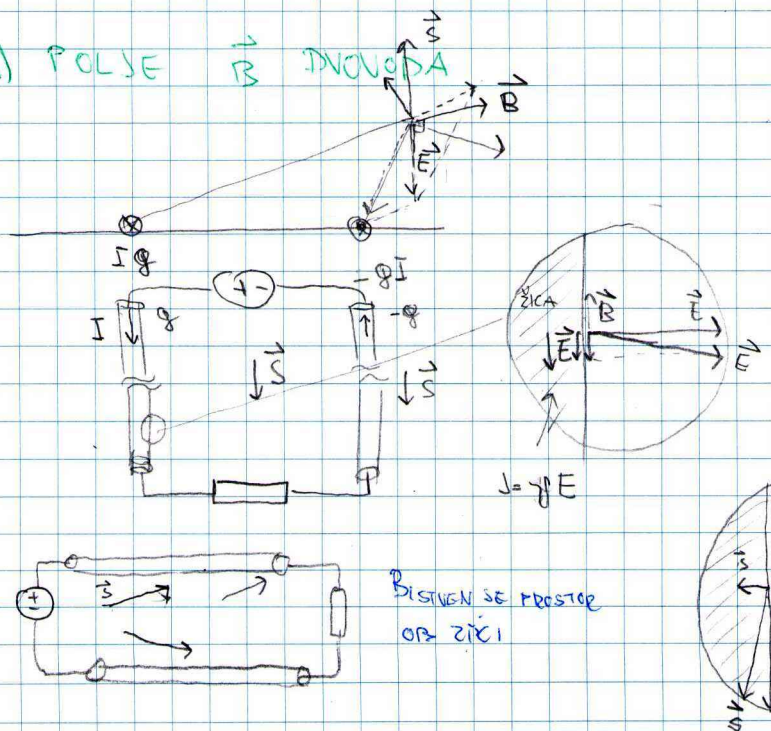 ) POLJE B⃗ DVOVODA
S⃗
B⃗
E⃗
I q
-qI
+ -
I q
-q
S⃗
S⃗
ŽICA
B⃗
E⃗
E⃗
E⃗
J = γE
±
S⃗
BISTVEN JE PROSTOR
OB ŽICI
S⃗
S⃗